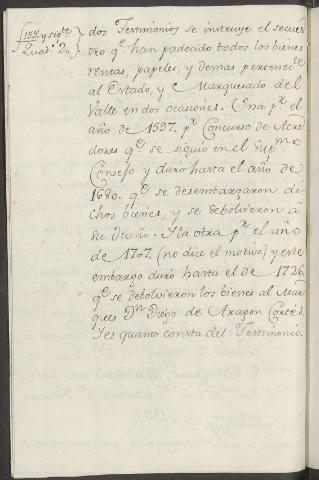 157. y sigte.
Quad.º 2.º
dos Testimonios se instruye el secues
tro qe. han padecido todos los bienes
rentas, papeles, y demas pertenecite.
al Estado, y Marquesado del
Valle en dos ocasiones. Una pr. el
año de 1597. pr. Concurso de Acre
dores qe. se siguio en el Supmo.
Consejo y duró hasta el año de
1680. qe. se desembargaron di
chos bienes, y se debolvieron â
su Dueño. Y la otra pr. el año
de 1707. (no dice el motivo) y este
embargo duró hasta el de 1726.
qe. se debolvieron los bienes al Mar
ques Dn. Diego de Aragon Cortés.
Y es quanto consta del Testimonio.